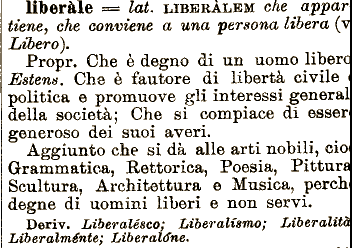 liberàle = lat. LIBERÀLEM che appar
tiene, che conviene a una persona libera (v
Libero).
Propr. Che è degno di un uomo libero
Estens. Che è fautore di libertà civile e
politica e promuove gli interessi general
della società; Che si compiace di esser
generoso dei suoi averi.
Aggiunto che si dà alle arti nobili, cioè
Grammatica, Rettorica, Poesia, Pittura
Scultura, Architettura e Musica, perch
degne di uomini liberi e non servi.
Deriv. Liberalésco; Liberalismo; Liberalità
Liberalménte; Liberalóne.